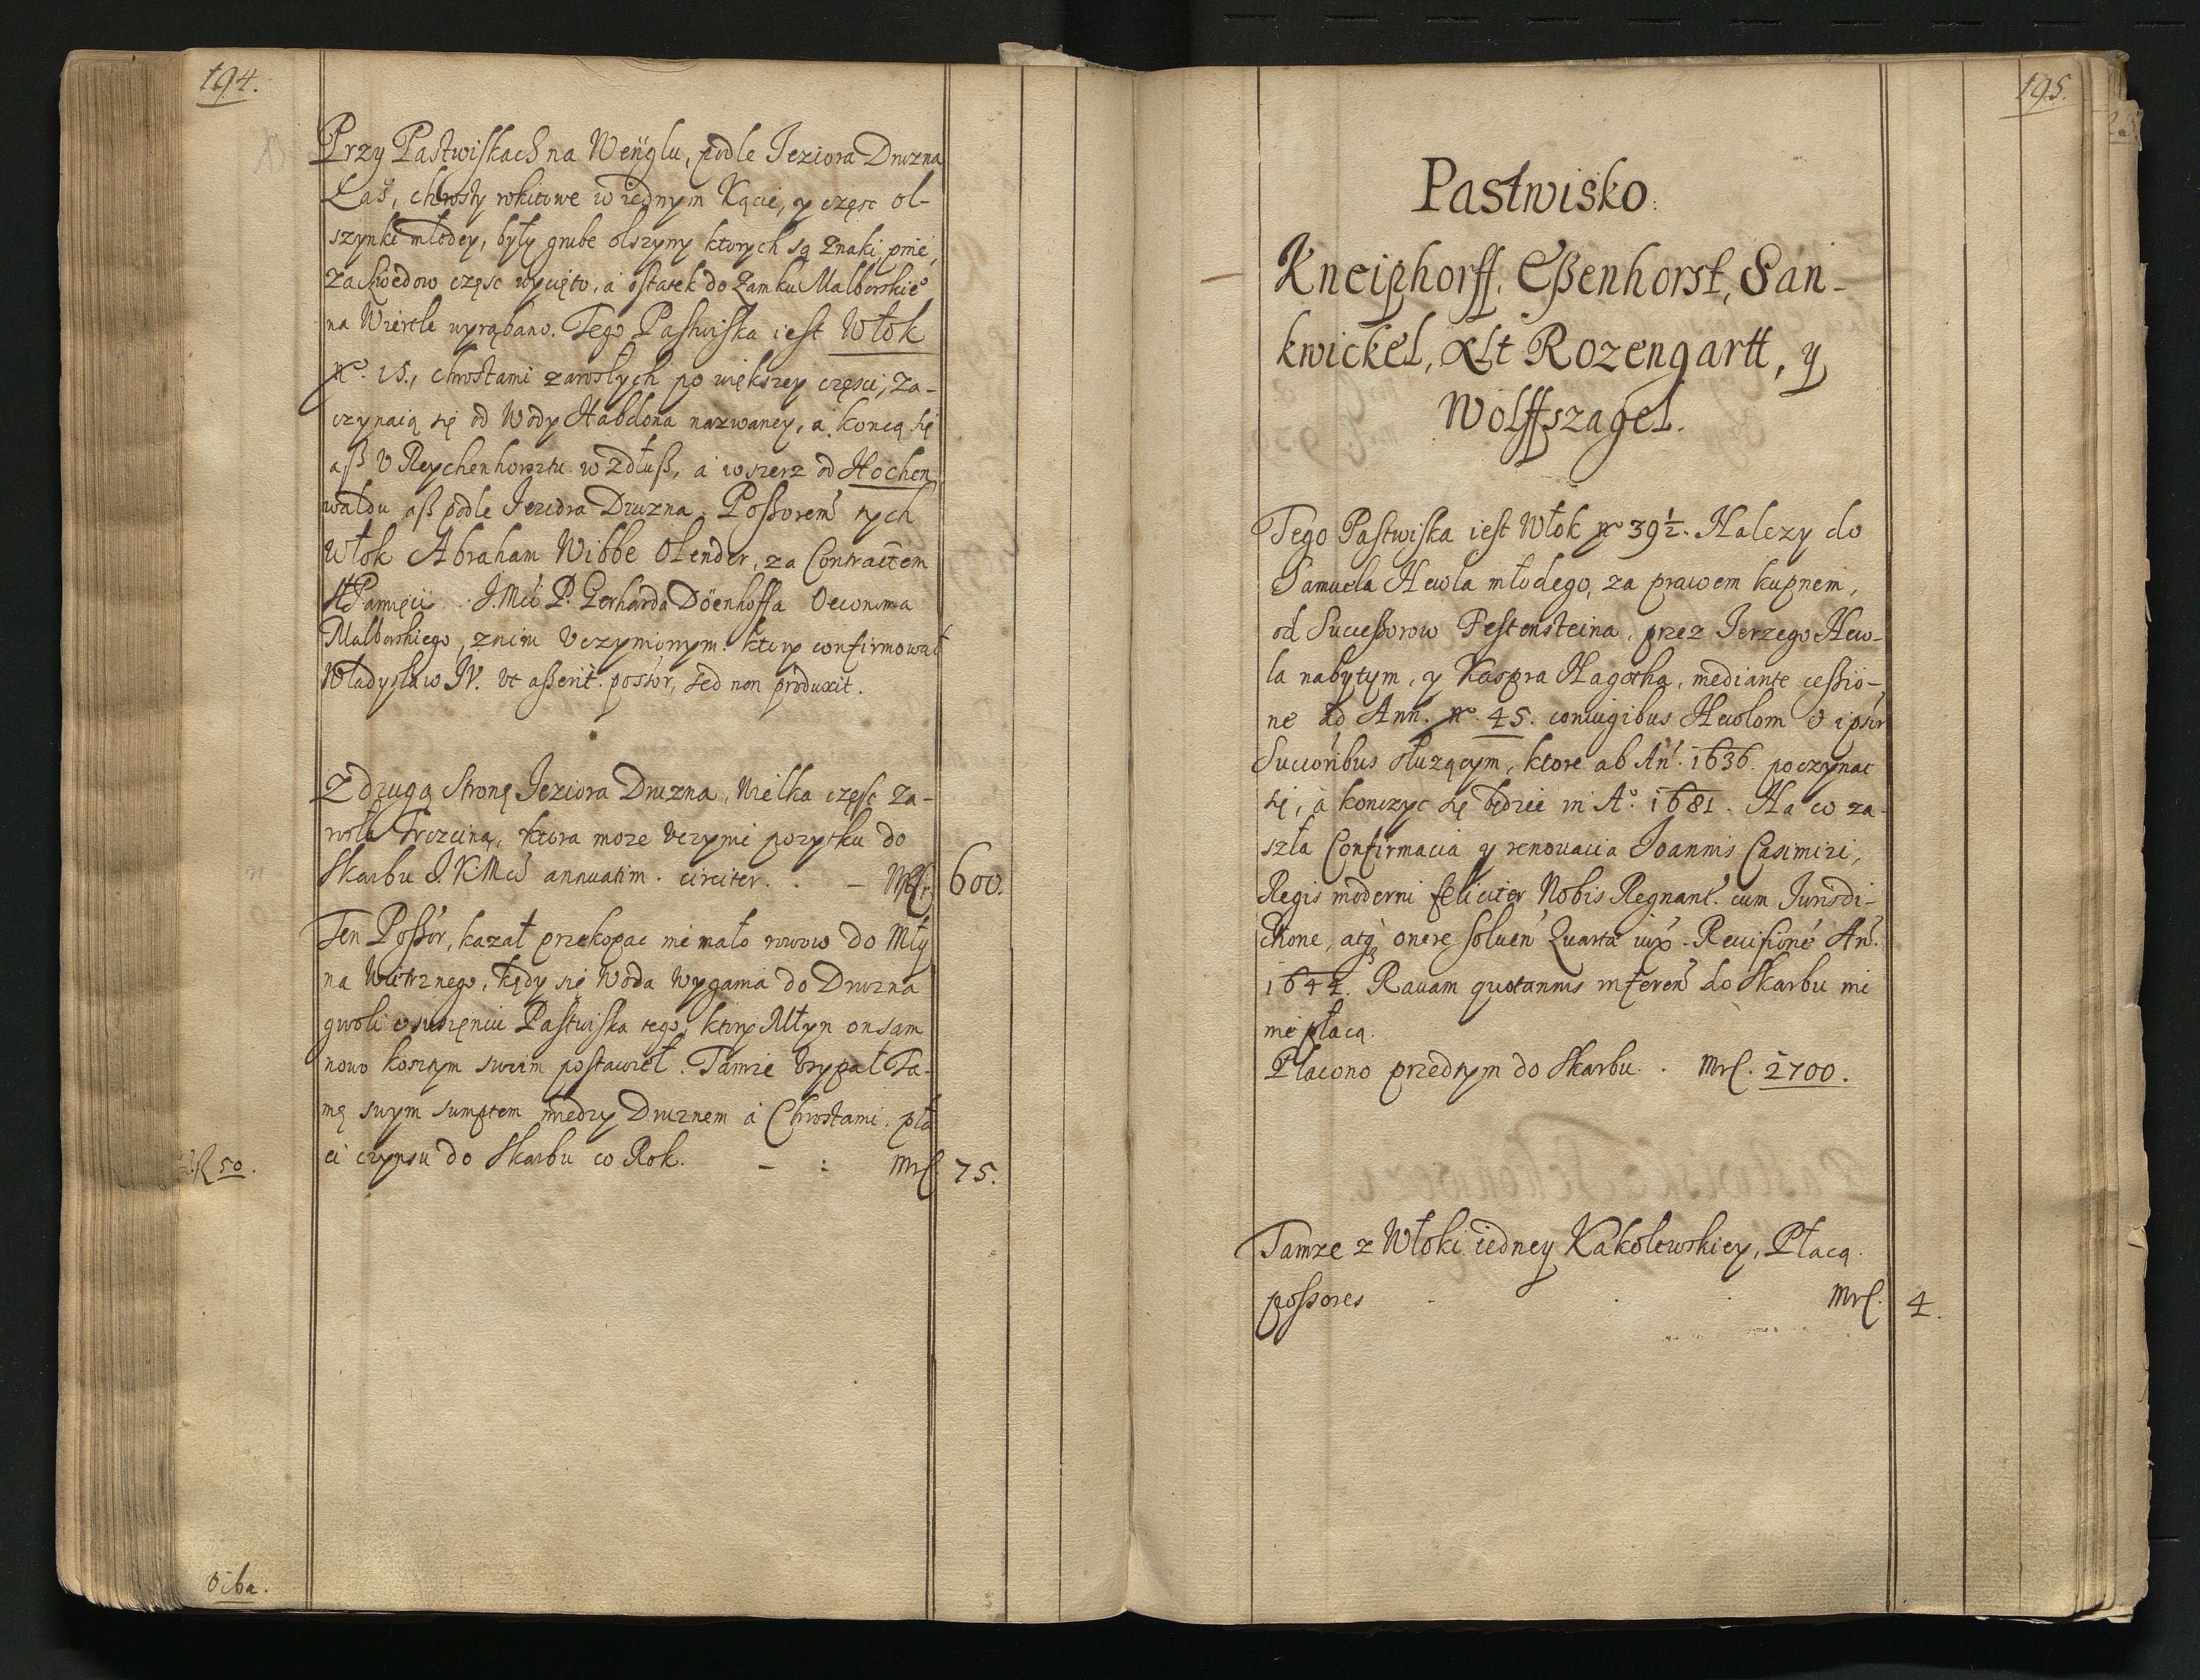 194.
Przy Pastwiskach na Weÿglu, podle Ieziora Druzna
Las, chrosty rokitowe w iednym Kącie, y częsc ol-
szynki młodey, były grube olszyny ktorych są znaki, pnie,
za Swedow częsc wycięto, a ostatek do Zamku Malborskie°
na Wiertle wyrąbano. Tego Pastwiska iest Włok
n° 15., chrostami zarosłych po większey częsci, za-
czynaią się od Wody Habdona nazwaney, a koncą się
aß v Reychenhorsztu wzdłuß, a wszerz od Hochen
waldu aß podle Ieziora Druzna. Poßorem tych
Włok Abraham Wibbe Olender, za Contractem
St Pamięci J.Mći P. Gerharda Döenhoffa Oeconoma
Malborskiego, z nim vczynionym. ktory confirmował
Władysław IV. vt aßerit possor, sed non produxit.
Z drugą Stronę Ieziora Druzna, Wielka częsc za-
rosla Trzciną, ktora moze vczynic pozytku do
Skarbu J.K.Mći annuatim circiter. . - Mr. 600.
Ten Poßor, kazał przekopac nie mało rowow do Mły
na Wietrznego, kędy się Woda wygania do Druzna
gwoli osuszeniu Pastwiska tego, ktory Młyn on sam
nowo kosztym swoim postawieł. Tamze vsypał Ta-
mę swym sumptem miedzy Druznem a Chrostami, pła
ci czynszu do Skarbu co Rok. - : Mr. 75.
50.
Oiba.
195.
Pastwisko.
Kneiphorff, Eßenhorst, San-
kwickel, Alt Rozengartt, y
Wolffszagel.
Tego Pastwiska iest Włok n° 39½. Nalezy do
Samuela Hewla młodego, za prawem kupnem,
od Succeßorow Festensteina, przez Ierzego Hew-
la nabytym, y Kaspra Hagotha, mediante ceßio-
ne ad Ann. n°. 45. coniugibus Hewlom v ipsor
Succoribus słuzącym, ktore ab An. 1636. poczynac
się, a konczyc się będzie in A°. 1681. Na co za-
szła Confirmacia y renouacia Ioannis Casimiri,
Regis moderni feliciter Nobis Regnant. cum Iurisdi-
ctione, atq onere soluen Quarta iux. Reuisione An.
1644. Rauam quotannis inferen do Skarbu nie
nie płacą.
Płacono przedtym do Skarbu. . Mr. 2700.
Tamze z Włoki iedney Kąkolewskiey, Płacą
poßores . . . Mr. 4.